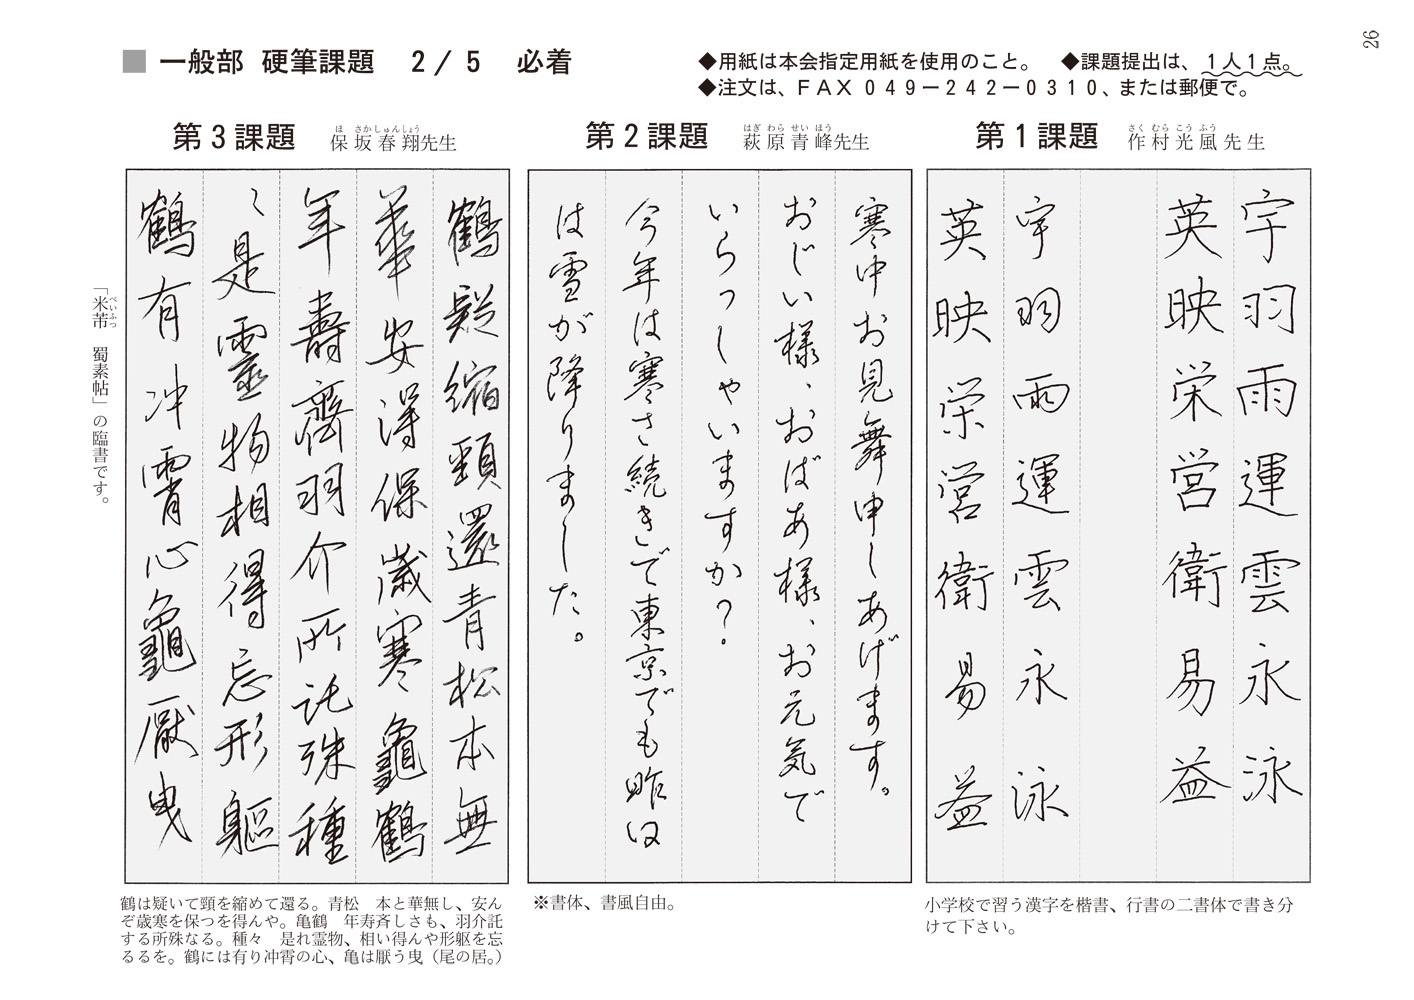 26
■ 一般部 硬筆課題 2/5 必着
◆用紙は本会指定用紙を使用のこと。 ◆課題提出は、1人1点。
◆注文は、FAX 049-242-0310、または郵便で。
第1課題 作村光風先生
さく むら こう ふう
宇羽雨運雲永泳
英映栄営衛易益
宇羽雨運雲永泳
英映栄営衛易益
小学校で習う漢字を楷書、行書の二書体で書き分
けて下さい。
第2課題 萩原青峰先生
はぎ わら せい ほう
寒中お見舞申しあげます。
おじい様、おばあ様、お元気で
いらっしゃいますか?.
今年は寒さ続きで東京でも昨日
は雪が降りました。
※書体、書風自由。
第3課題 保坂春翔先生
ほ さかしゅんしょう
鶴疑縮頸還青松本無
華安得保歳寒龜鶴
年壽齊羽介所託殊種
〻是靈物相得忘形軀
鶴有冲霄心龜厭曳
鶴は疑いて頸を縮めて還る。青松 本と華無し、安ん
ぞ歳寒を保つを得んや。亀鶴 年寿斉しさも、羽介託
する所殊なる。種々 是れ霊物、相い得んや形躯を忘
るるを。鶴には有り冲霄の心、亀は厭う曳(尾の居。)
「米芾 蜀素帖」の臨書です。
べいふつ